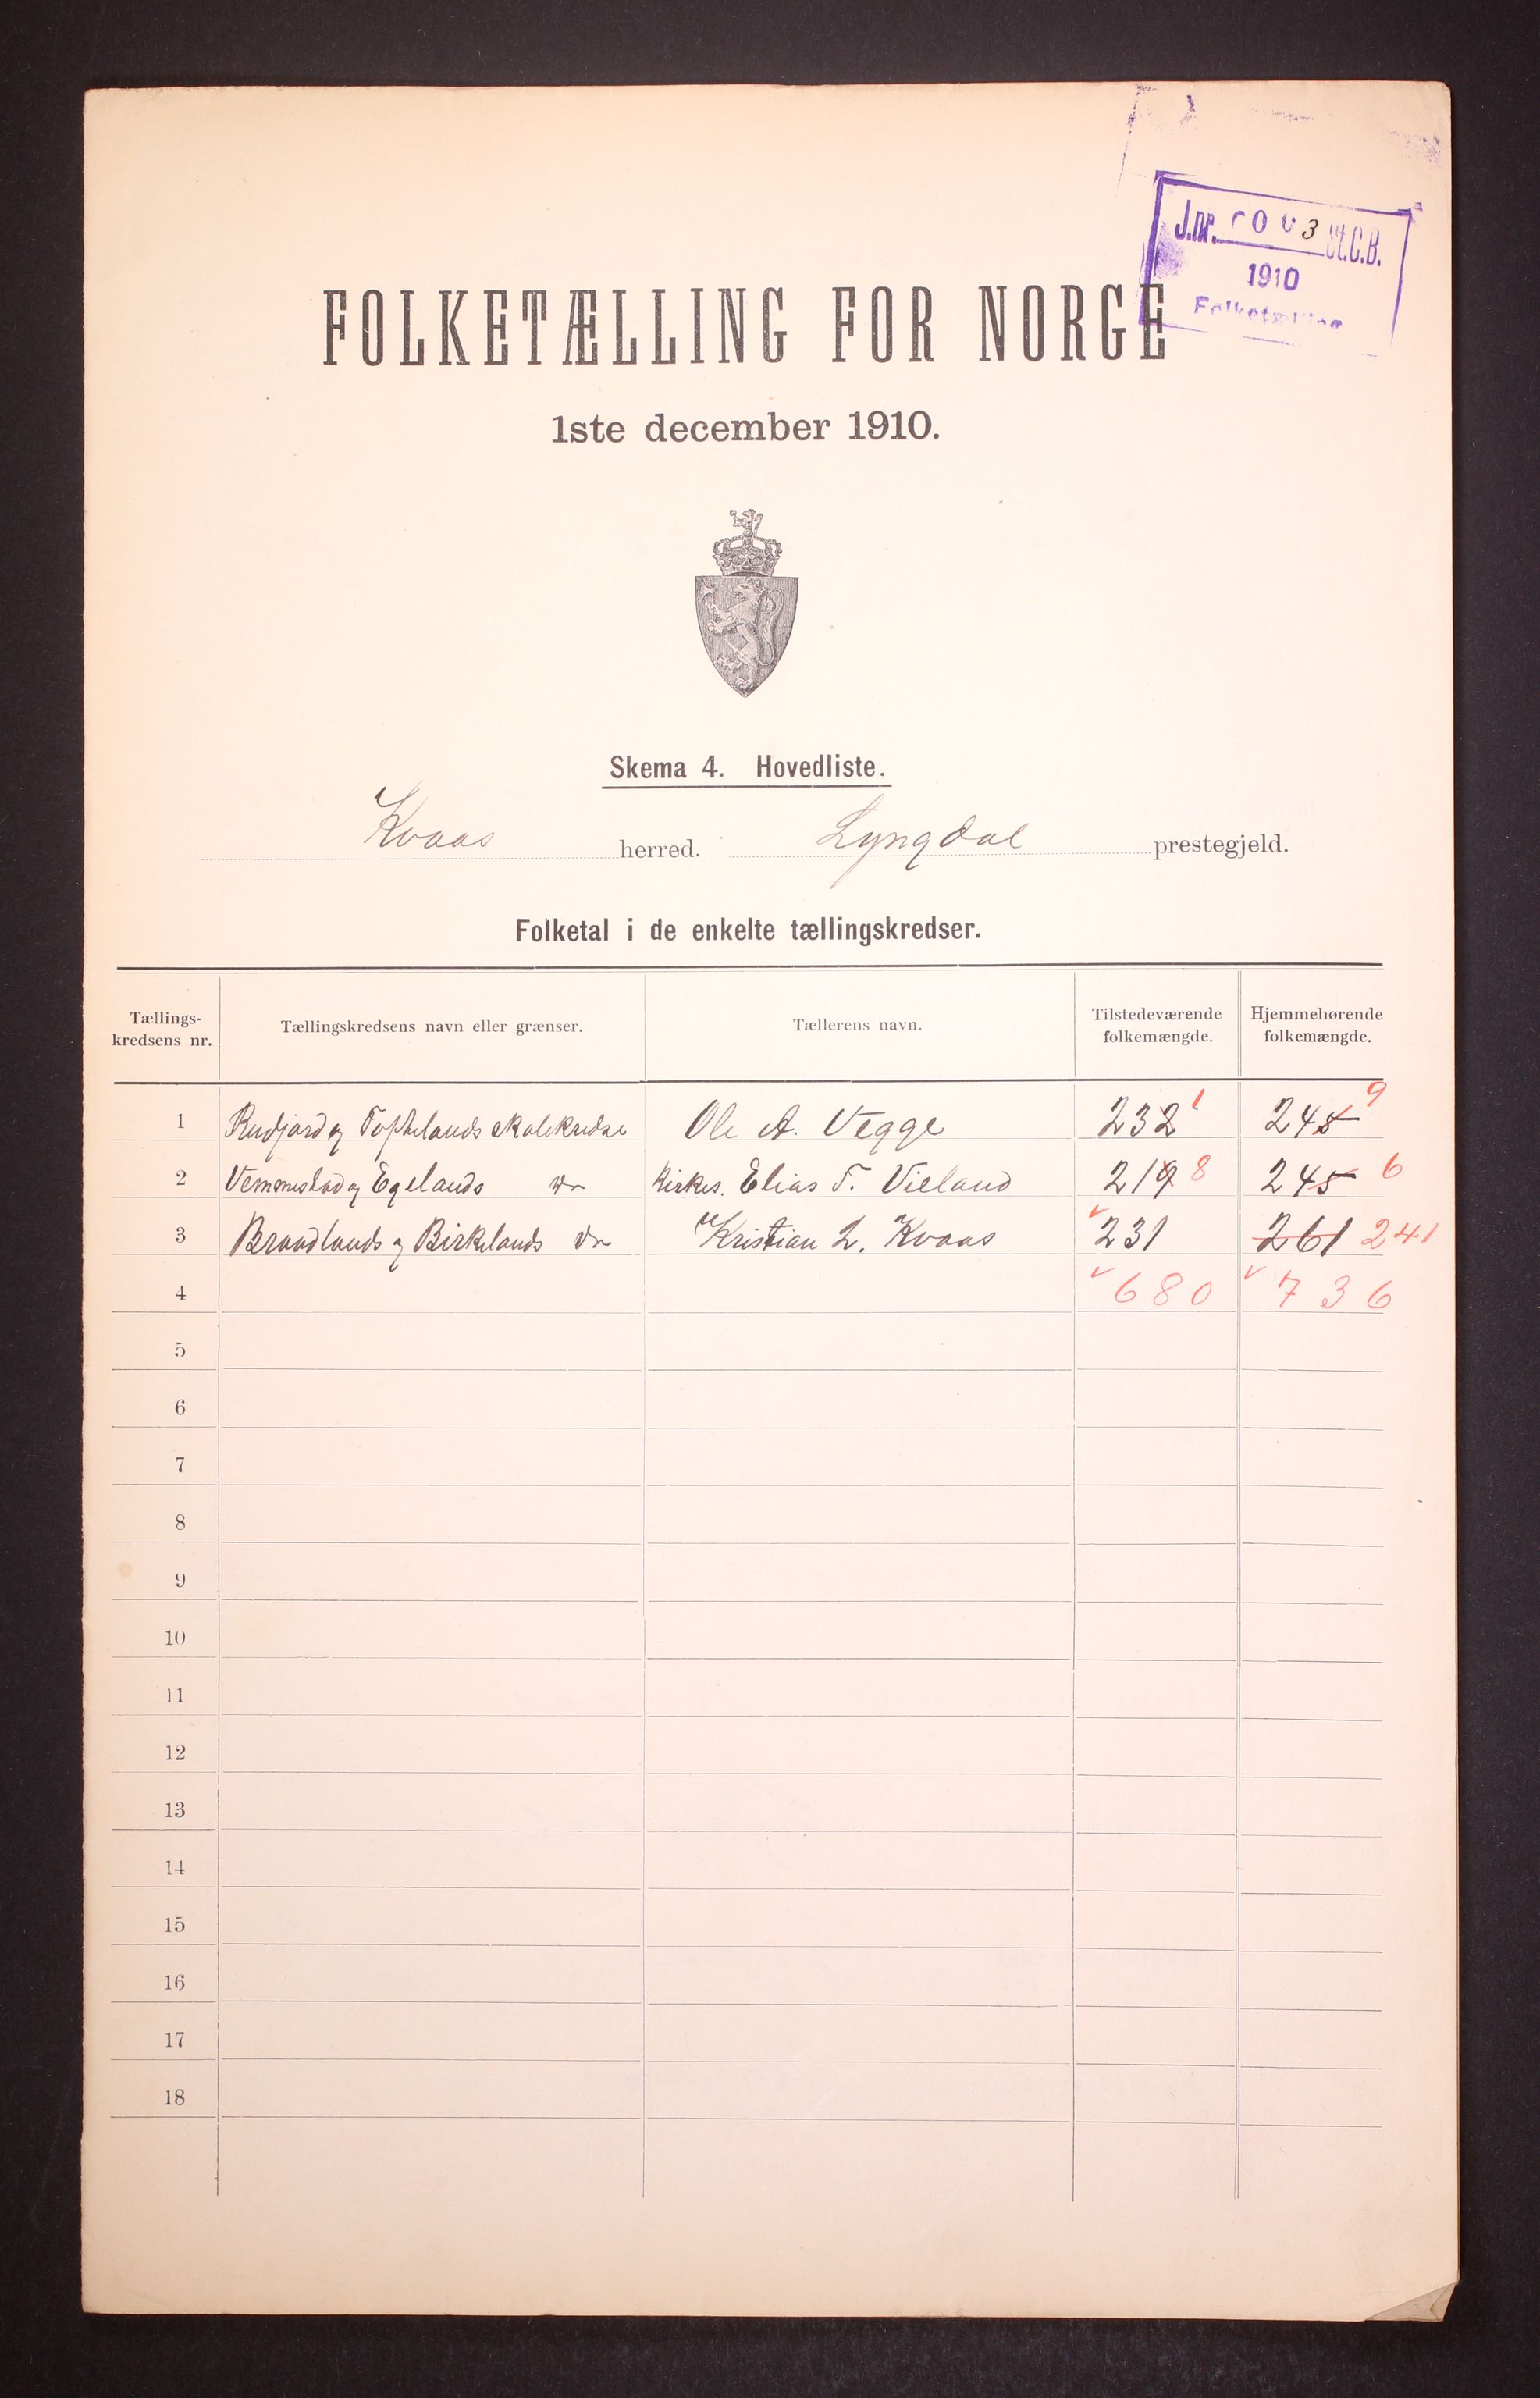 J.nr. 3 St.C.B.
1910
Folketælling
FOLKETÆLLING FOR NORGE
1ste december 1910.
Skema 4. Hovedliste.
Kvaas herred. Lyngdal prestegjeld.
Folketal i de enkelte tællingskredser.
Tællings- kredsens nr. Tællingskredsens navn eller grænser. Tællerens navn. Tilstedeværende folkemængde. Hjemmehørende folkemængde.
1 Rudjord og Tophelands skolekredse Ole A. Vegge 232 1 248 9
2 Vemmestad og Egelands do Kirkes. Elias T. Vieland 219 8 245 6
3 Braadlands og Birkelands do Kristian L. Kvaas 231 261 241
4 680 736
5
6
7
8
9
10
11
12
13
14
15
16
17
18